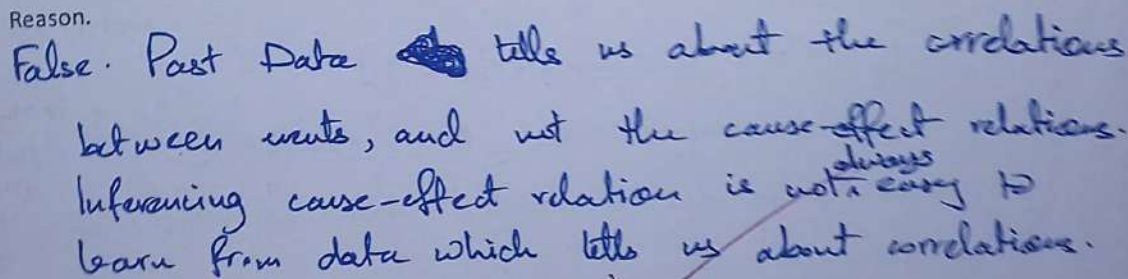 Reason.
False. Past Data tells us about the correlations
between events, and not the cause-effect relations.
always
Inferencing cause-effect relation is not easy to
learn from data which tells us about correlations.